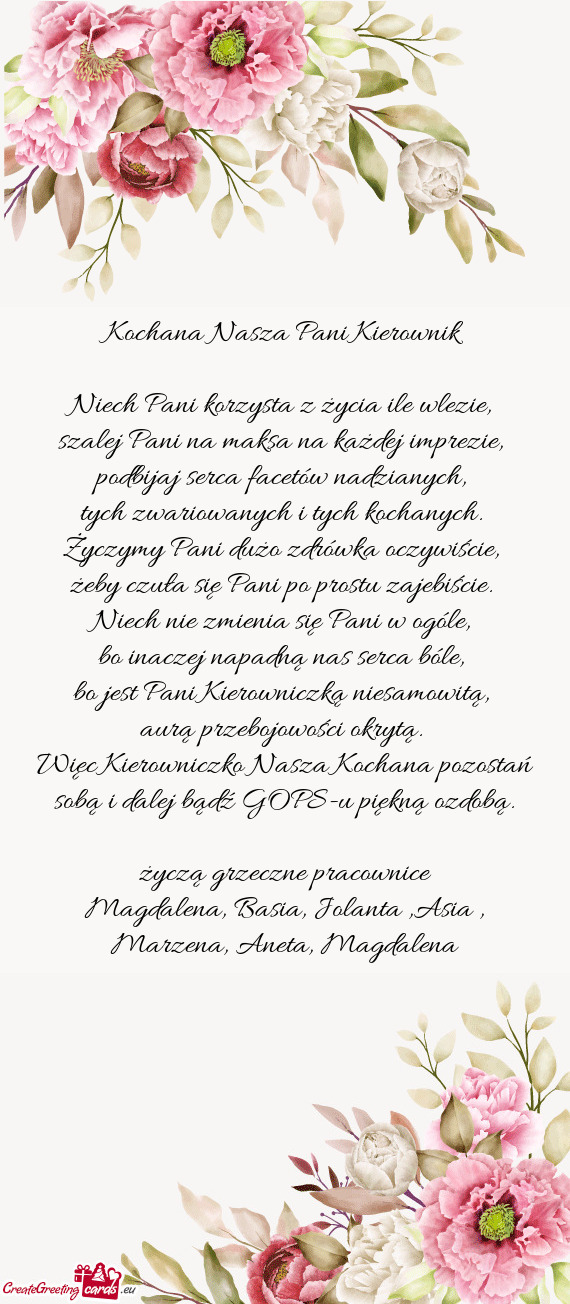 Kochana Nasza Pani Kierownik
Niech Pani korzysta z życia ile wlezie,
szalej Pani na maksa na każdej imprezie,
podbijaj serca facetów nadzianych,
tych zwariowanych i tych kochanych.
Życzymy Pani dużo zdrówka oczywiście,
żeby czuła się Pani po prostu zajebiście.
Niech nie zmienia się Pani w ogóle,
bo inaczej napadną nas serca bóle,
bo jest Pani Kierowniczką niesamowitą,
aurą przebojowości okrytą.
Więc Kierowniczko Nasza Kochana pozostań
sobą i dalej bądź GOPS-u piękną ozdobą.
życzą grzeczne pracownice
Magdalena, Basia, Jolanta ,Asia ,
Marzena, Aneta, Magdalena
CreateGreeting cards .eu